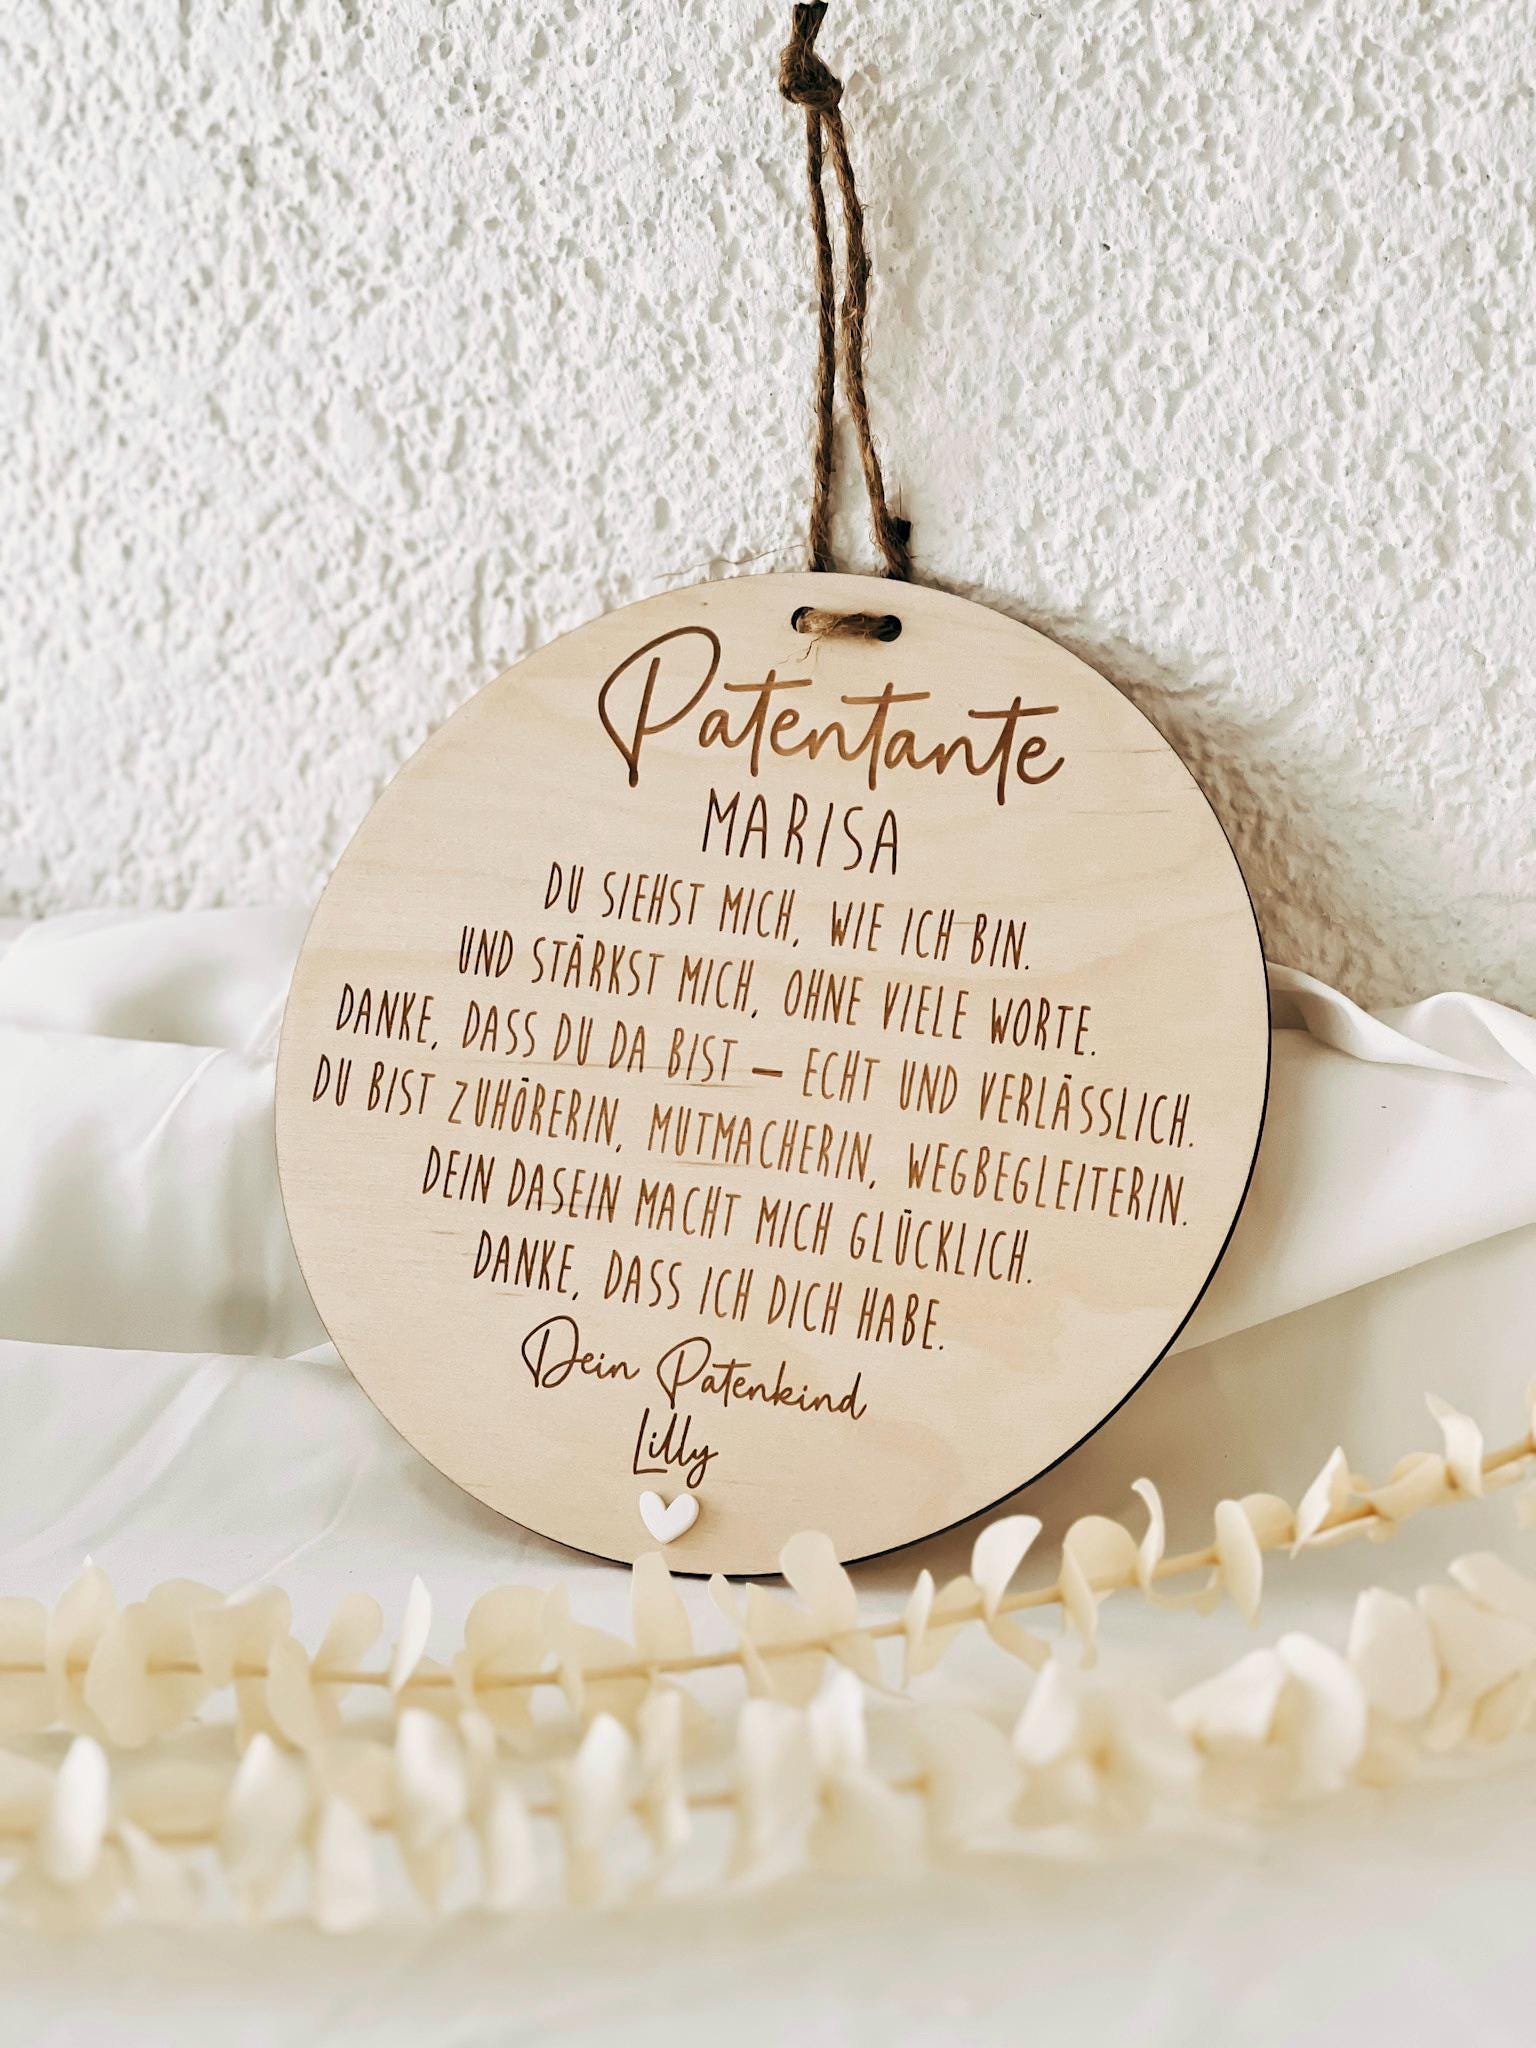 Patentante
MARISA
DU SIEHST MICH, WIE ICH BIN.
UND STÄRKST MICH, OHNE VIELE WORTE.
DANKE, DASS DU DA BIST – ECHT UND VERLÄSSLICH.
DU BIST ZUHÖRERIN, MUTMACHERIN, WEGBEGLEITERIN.
DEIN DASEIN MACHT MICH GLÜCKLICH.
DANKE, DASS ICH DICH HABE.
Dein Patenkind
Lilly